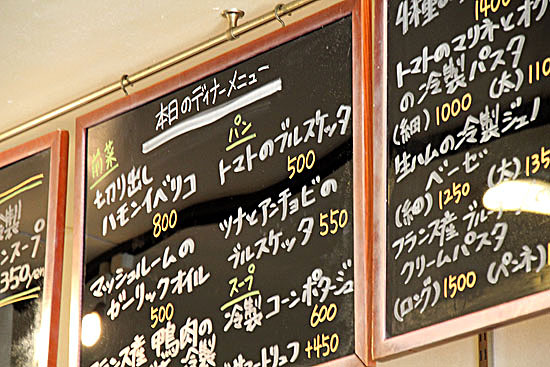 製
スープ
350
本日のディナーメニュー
前菜
切り出し
ハモンイベリコ
800
マッシュルームの
ガーリックオイル
500
フランス産 鴨肉の
パン
トマトのブルスケッタ
500
ツナとアンチョビの
ブルスケッタ 550
スープ
冷製 コーンポタージュ
600
+450
4種の
1400
トマトのマリネとオ
の冷製パスタ
(細) 1000 (太) 110
生ハムの冷製ジェノ
ベーゼ
(細) 1250 (太) 135
フランス産 ブルー
クリームパスタ
(ロング) 1500 (ペンネ) 1